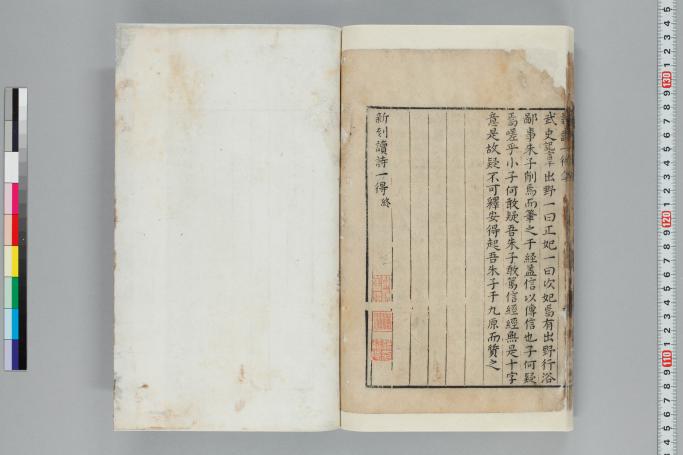 出野一曰正妃一曰次妃焉有出野行浴
鄙事朱子削焉而筆之于經蓋信以傳信也子何疑
焉嗟乎小子何敢疑吾朱子敢篤信經經無是十字
意是故疑不可釋安得起吾朱子于九原而質之
新刻讀詩一得終